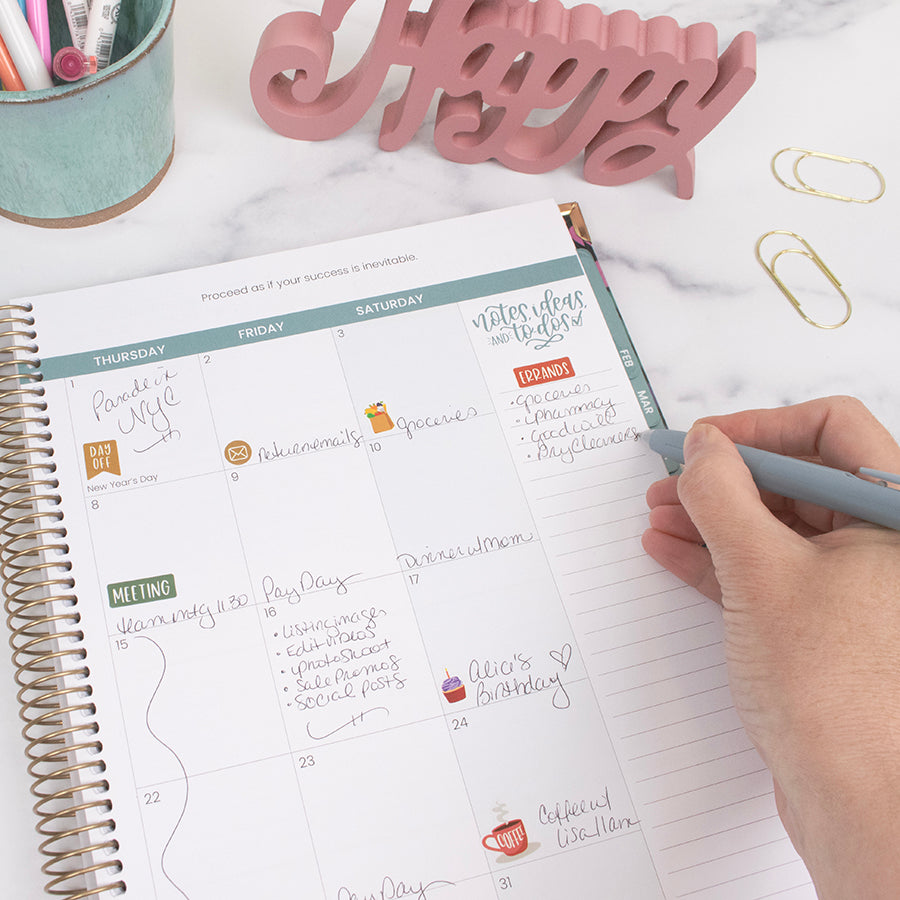 Happy
Proceed as if your success is inevitable.
THURSDAY
FRIDAY
SATURDAY
notes, ideas,
AND to dos
FEB
MAR
ERRANDS
• groceries
• pharmacy
• goodwill
• Dry Cleaners
1
Parade in
NYC
DAY
OFF
New Year's Day
2
Return emails
3
groceries
8
MEETING
team mtg 11:30
9
Pay Day
10
Dinner w/ Mom
15
16
• Listing images
• Edit videos
• photoshoot
• Sale Promos
• Social posts
17
Alici's
Birthday
22
23
Pay Day
24
COFFEE
Coffee w/
Lisa 11am
31